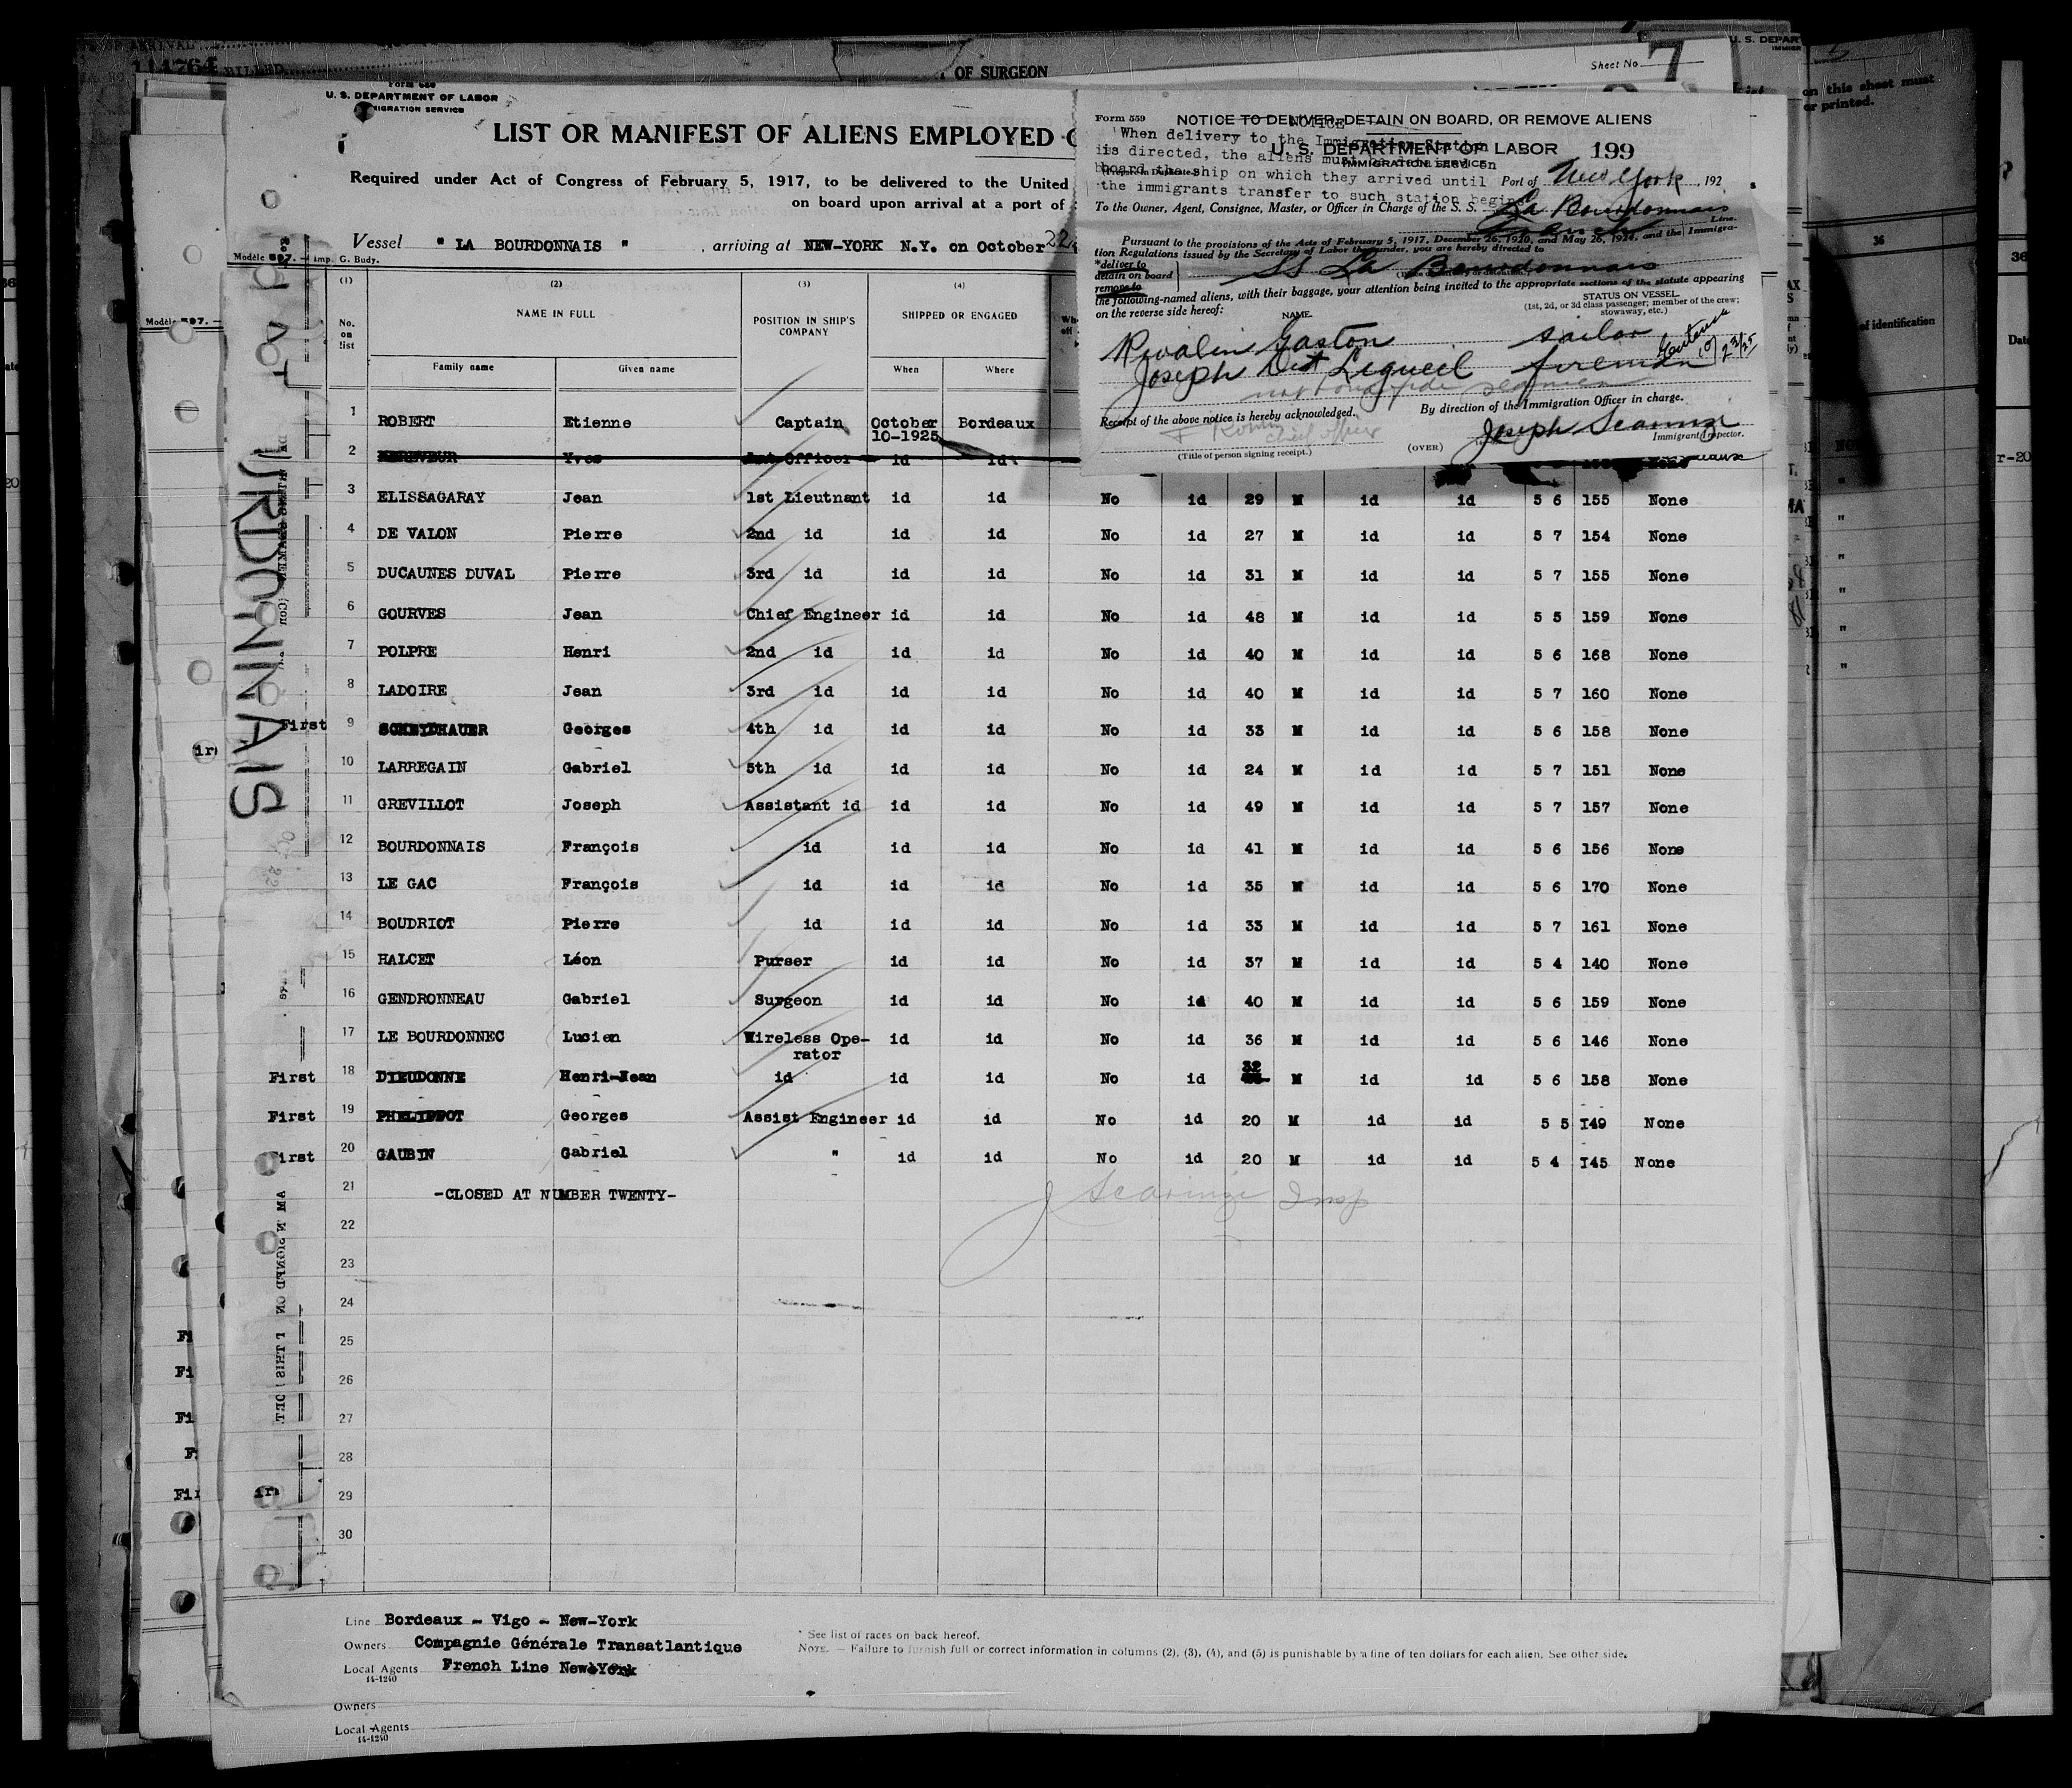 114764
OF SURGEON
Sheet No 7
Form 680
U. S. DEPARTMENT OF LABOR
IMMIGRATION SERVICE
LIST OR MANIFEST OF ALIENS EMPLOYED
Required under Act of Congress of February 5, 1917, to be delivered to the United
on board upon arrival at a port of
Vessel " LA BOURDONNAIS " , arriving at NEW-YORK N.Y. on October 22
Modèle 597. — Imp. G. Budy.
Form 559 NOTICE TO DELIVER, DETAIN ON BOARD, OR REMOVE ALIENS
NOTICE
When delivery to the Immigration Station
is directed, the aliens must be detained on
board the ship on which they arrived until
the immigrants transfer to such station begins
U. S. DEPARTMENT OF LABOR 199
IMMIGRATION SERVICE
Port of New York, 192
To the Owner, Agent, Consignee, Master, or Officer in Charge of the S. S. La Bourdonnais
French Line.
Pursuant to the provisions of the Acts of February 5, 1917, December 26, 1920, and May 26, 1924, and the Immigra-
tion Regulations issued by the Secretary of Labor thereunder, you are hereby directed to
*deliver to
detain on board
remove to
SS La Bourdonnais
the following-named aliens, with their baggage, your attention being invited to the appropriate sections of the statute appearing
on the reverse side hereof:
NAME.
STATUS ON VESSEL
(1st, 2d, or 3d class passenger; member of the crew;
stowaway, etc.)
Rivalin Gaston sailor
Joseph Lequeil fireman
10/23/25
not bona fide seamen
Receipt of the above notice is hereby acknowledged.
By direction of the Immigration Officer in charge.
chief officer
Joseph Scaringi
(Title of person signing receipt.) (OVER) Immigrant Inspector.
(1) (2) (3) (4)
No. on list NAME IN FULL POSITION IN SHIP'S COMPANY SHIPPED OR ENGAGED
Family name Given name When Where
1 ROBERT Etienne Captain October 10-1925 Bordeaux
2 Yves Officer id id
3 ELISSAGARAY Jean 1st Lieutnant id id No id 29 M id id 5 6 155 None
4 DE VALON Pierre 2nd id id id No id 27 M id id 5 7 154 None
5 DUCAUNES DUVAL Pierre 3rd id id id No id 31 M id id 5 7 155 None
6 GOURVES Jean Chief Engineer id id No id 48 M id id 5 5 159 None
7 POLPRE Henri 2nd id id id No id 40 M id id 5 6 168 None
8 LADOIRE Jean 3rd id id id No id 40 M id id 5 7 160 None
First 9 SCHEYDHAUER Georges 4th id id id No id 33 M id id 5 6 158 None
10 LARREGAIN Gabriel 5th id id id No id 24 M id id 5 7 151 None
11 GREVILLOT Joseph Assistant id id id No id 49 M id id 5 7 157 None
12 BOURDONNAIS François id id id No id 41 M id id 5 6 156 None
13 LE GAC François id id id No id 35 M id id 5 6 170 None
14 BOUDRIOT Pierre id id id No id 33 M id id 5 7 161 None
15 HALCET Léon Purser id id No id 37 M id id 5 4 140 None
16 GENDRONNEAU Gabriel Surgeon id id No id 40 M id id 5 6 159 None
17 LE BOURDONNEC Lucien Wireless Ope- id id No id 36 M id id 5 6 146 None
rator
First 18 DIEUDONNE Henri-Jean id id id No id 32 M id id 5 6 158 None
First 19 PHELIPPOT Georges Assist Engineer id id No id 20 M id id 5 5 149 None
First 20 GAUBIN Gabriel " id id No id 20 M id id 5 4 145 None
21 -CLOSED AT NUMBER TWENTY-
J Scaringi Insp
22
23
24
25
26
27
28
29
30
Line Bordeaux - Vigo - New-York
Owners Compagnie Générale Transatlantique
Local Agents French Line New-York
14-1240
* See list of races on back hereof.
NOTE. — Failure to furnish full or correct information in columns (2), (3), (4), and (5) is punishable by a fine of ten dollars for each alien. See other side.
Owners
Local Agents
14-1240